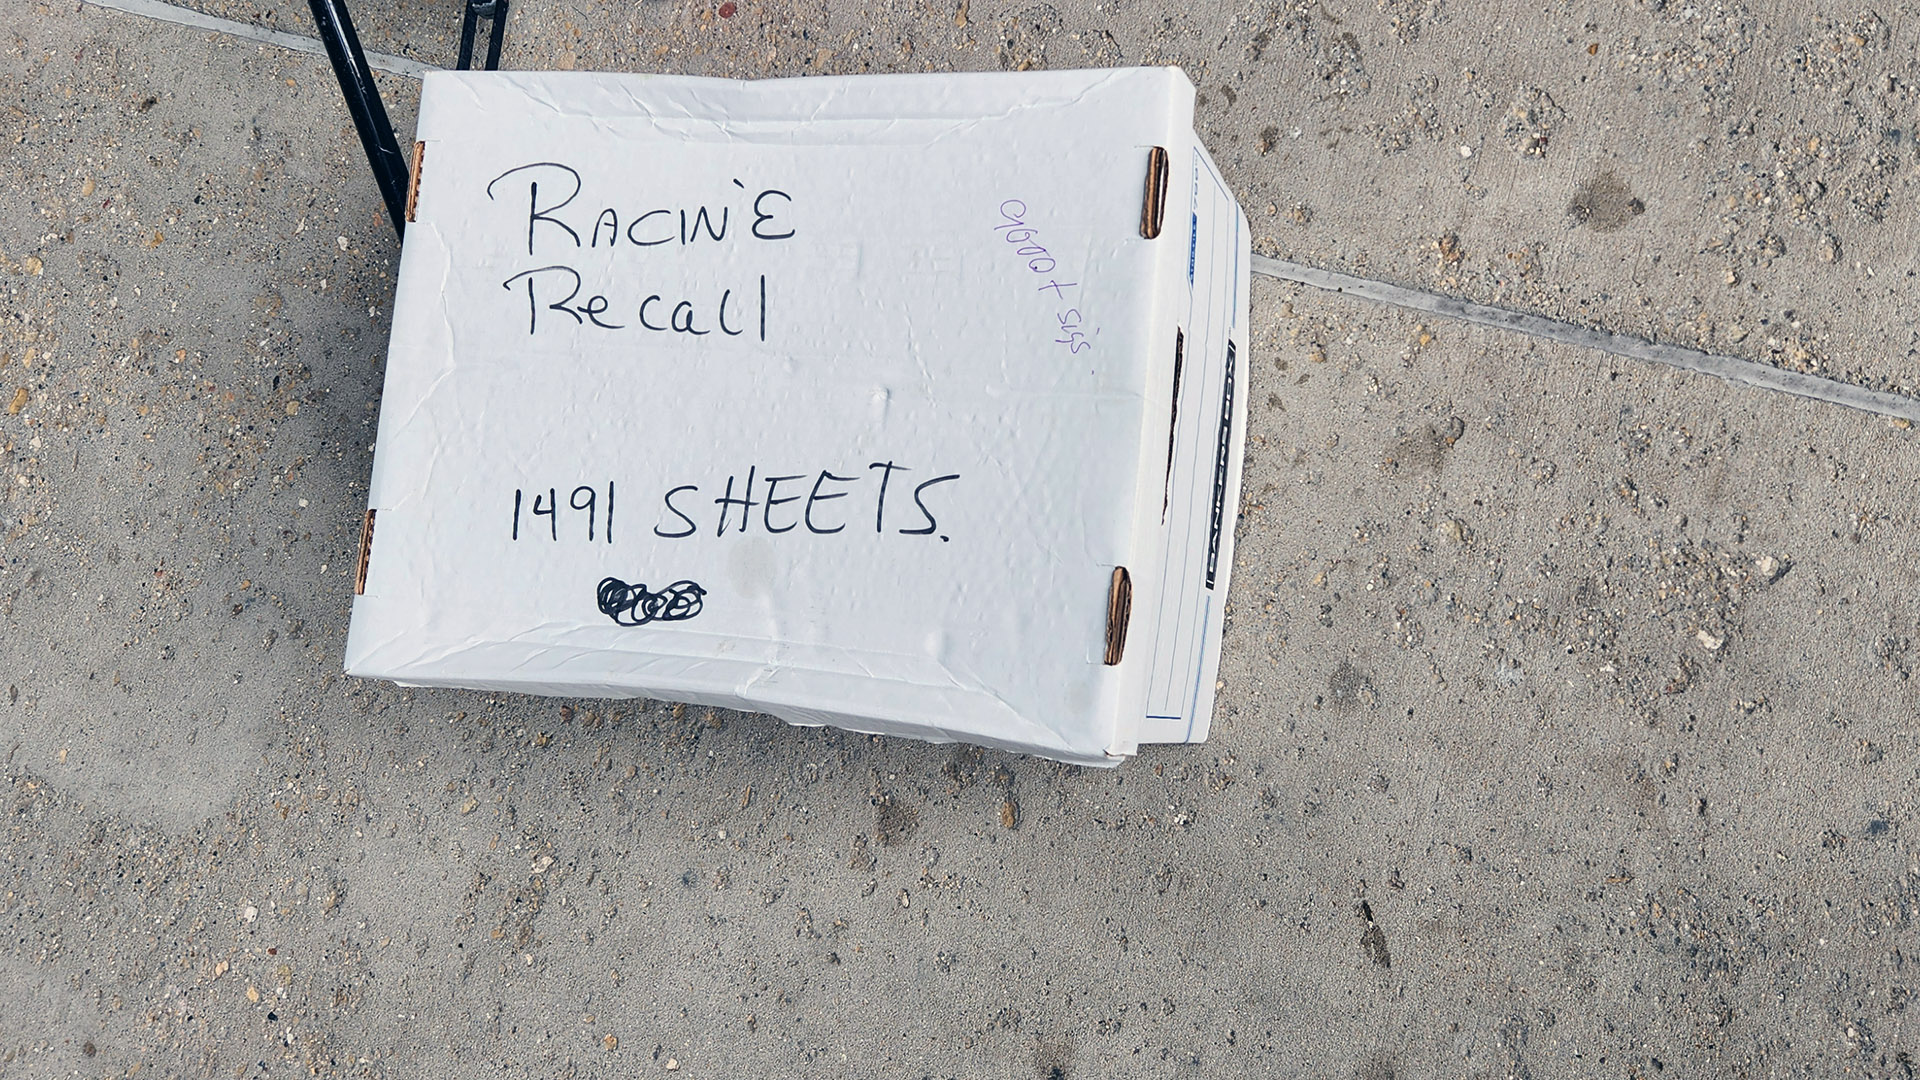 RACINE
Recall
1491 SHEETS.
+ sigs
BANKERS BOX